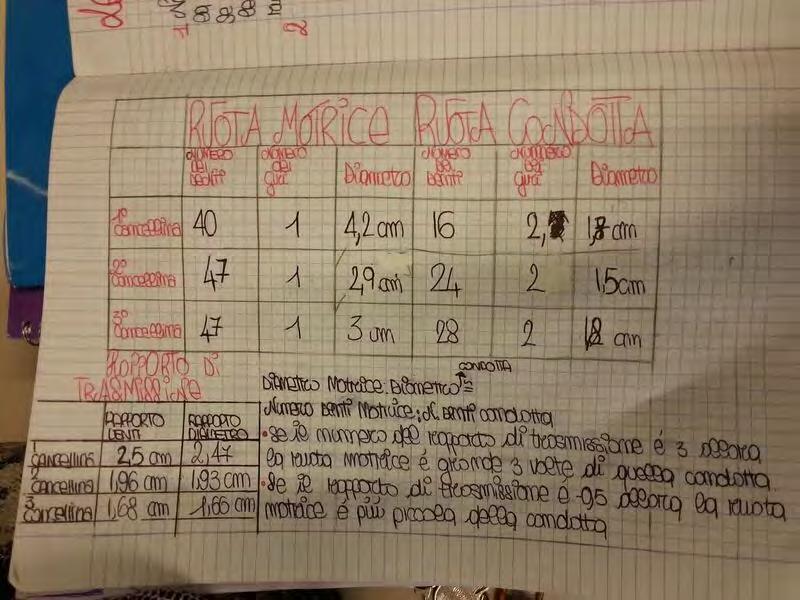 RUOTA MOTRICE RUOTA CONDOTTA
NUMERO DEI DENTI NUMERO DEI giri Diametro NUMERO DEI DENTI NUMERO DEI giri Diametro
1° cancellina 40 1 4,2 cm 16 2, 1,7 cm
2° cancellina 47 1 2,9 cm 24 2 1,5cm
3° cancellina 47 1 3 cm 28 2 1,8 cm
RAPPORTO DI
TRASMISSIONE
RAPPORTO DENTI RAPPORTO DIAMETRO
1 cancellina 2,5 cm 2,47
2 cancellina 1,96 cm 1,93 cm
3 cancellina 1,68 cm 1,66 cm
CONDOTTA
Diametro Motrice : Diametro =
Numero Denti Motrice : N. Denti condotta
• se il numero del rapporto di trasmissione é 3 allora
la ruota motrice é grande 3 volte di quella condotta
• Se il rapporto di trasmissione é 0,5 allora la ruota
motrice é più piccola della condotta